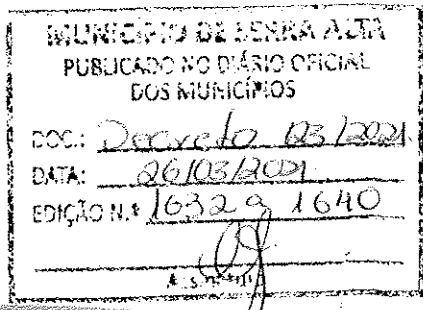 MUNICÍPIO DE SERRA ALTA
PUBLICADO NO DIÁRIO OFICIAL
DOS MUNICÍPIOS
DOC.: Decreto 123/2021
DATA: 26/03/2021
EDIÇÃO N.º 1632 a 1640
Assinatura